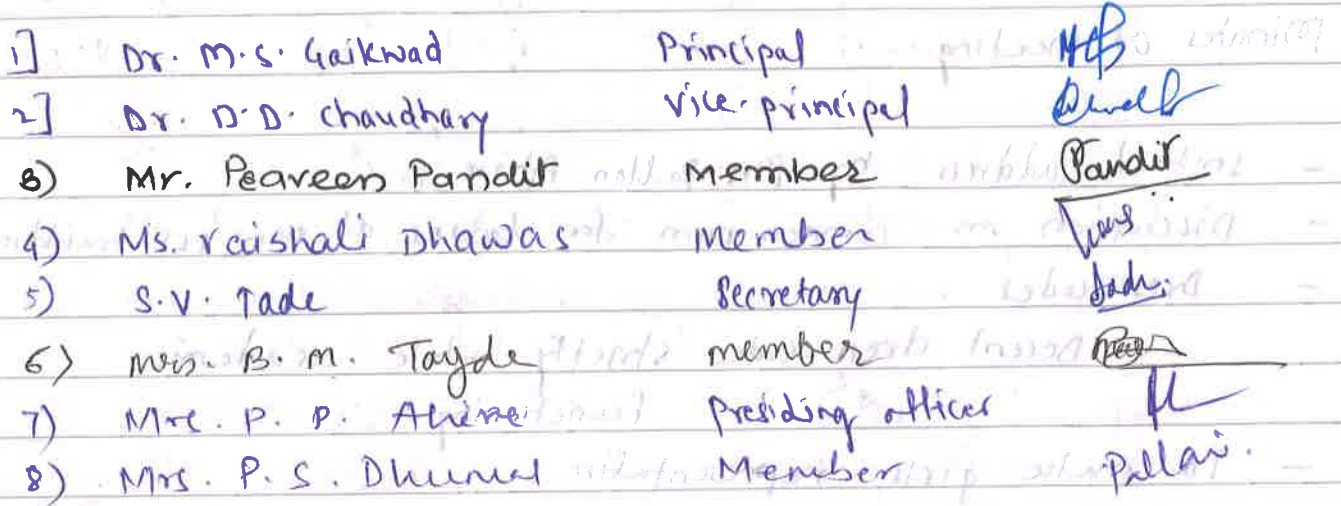 1] Dr. M.S. Gaikwad Principal
2] Dr. D.D. Chaudhary Vice-principal
3) Mr. Peaveen Pandit Member Pandit
4) Ms. Vaishali Dhawas Member
5) S.V. Tade Secretary
6) Mrs. B.M. Tayde member
7) P. P. Presiding officer
8) Mrs. P.S. Dhumal Member Pallavi.